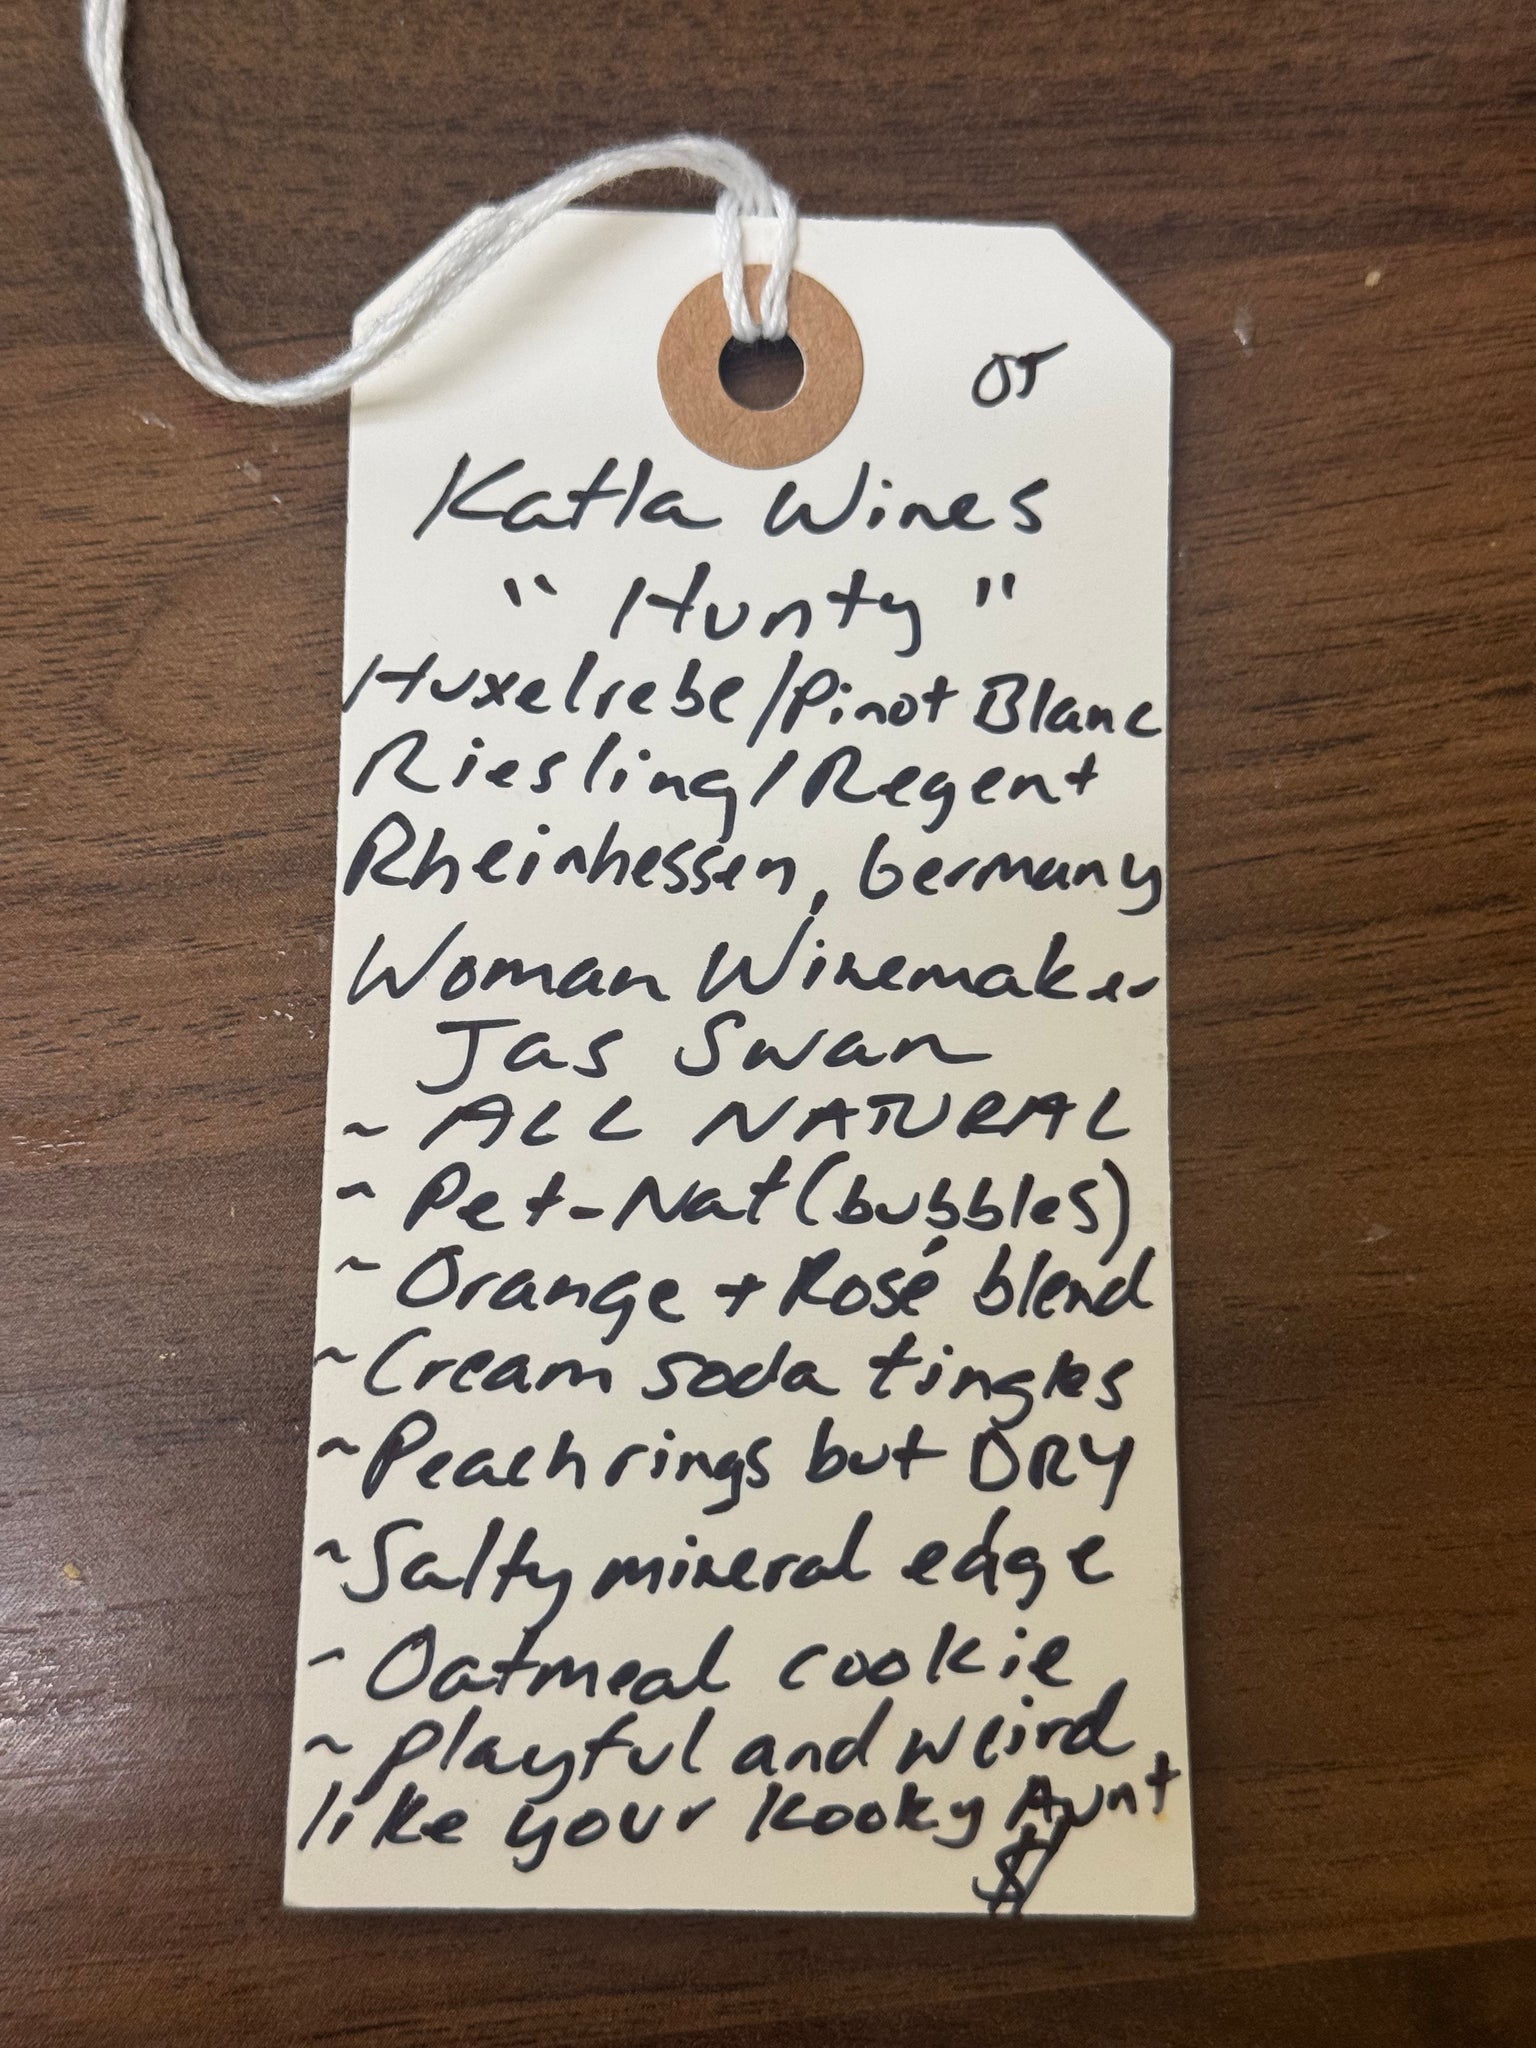 Katla Wines
"Hunty"
Huxelrebe/Pinot Blanc
Riesling/Regent
Rheinhessen, Germany
Woman Winemaker
Jas Swan
~ ALL NATURAL
~ Pet-Nat (bubbles)
~ Orange + Rosé blend
~ Cream soda tingles
~ Peach rings but DRY
~ Salty mineral edge
~ Oatmeal cookie
~ playful and weird
like your kooky Aunt
$